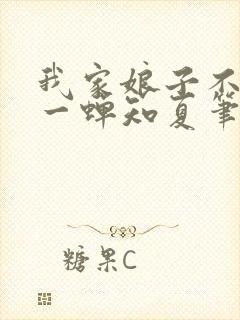 我家娘子不
一蝉知夏笔
糖果C